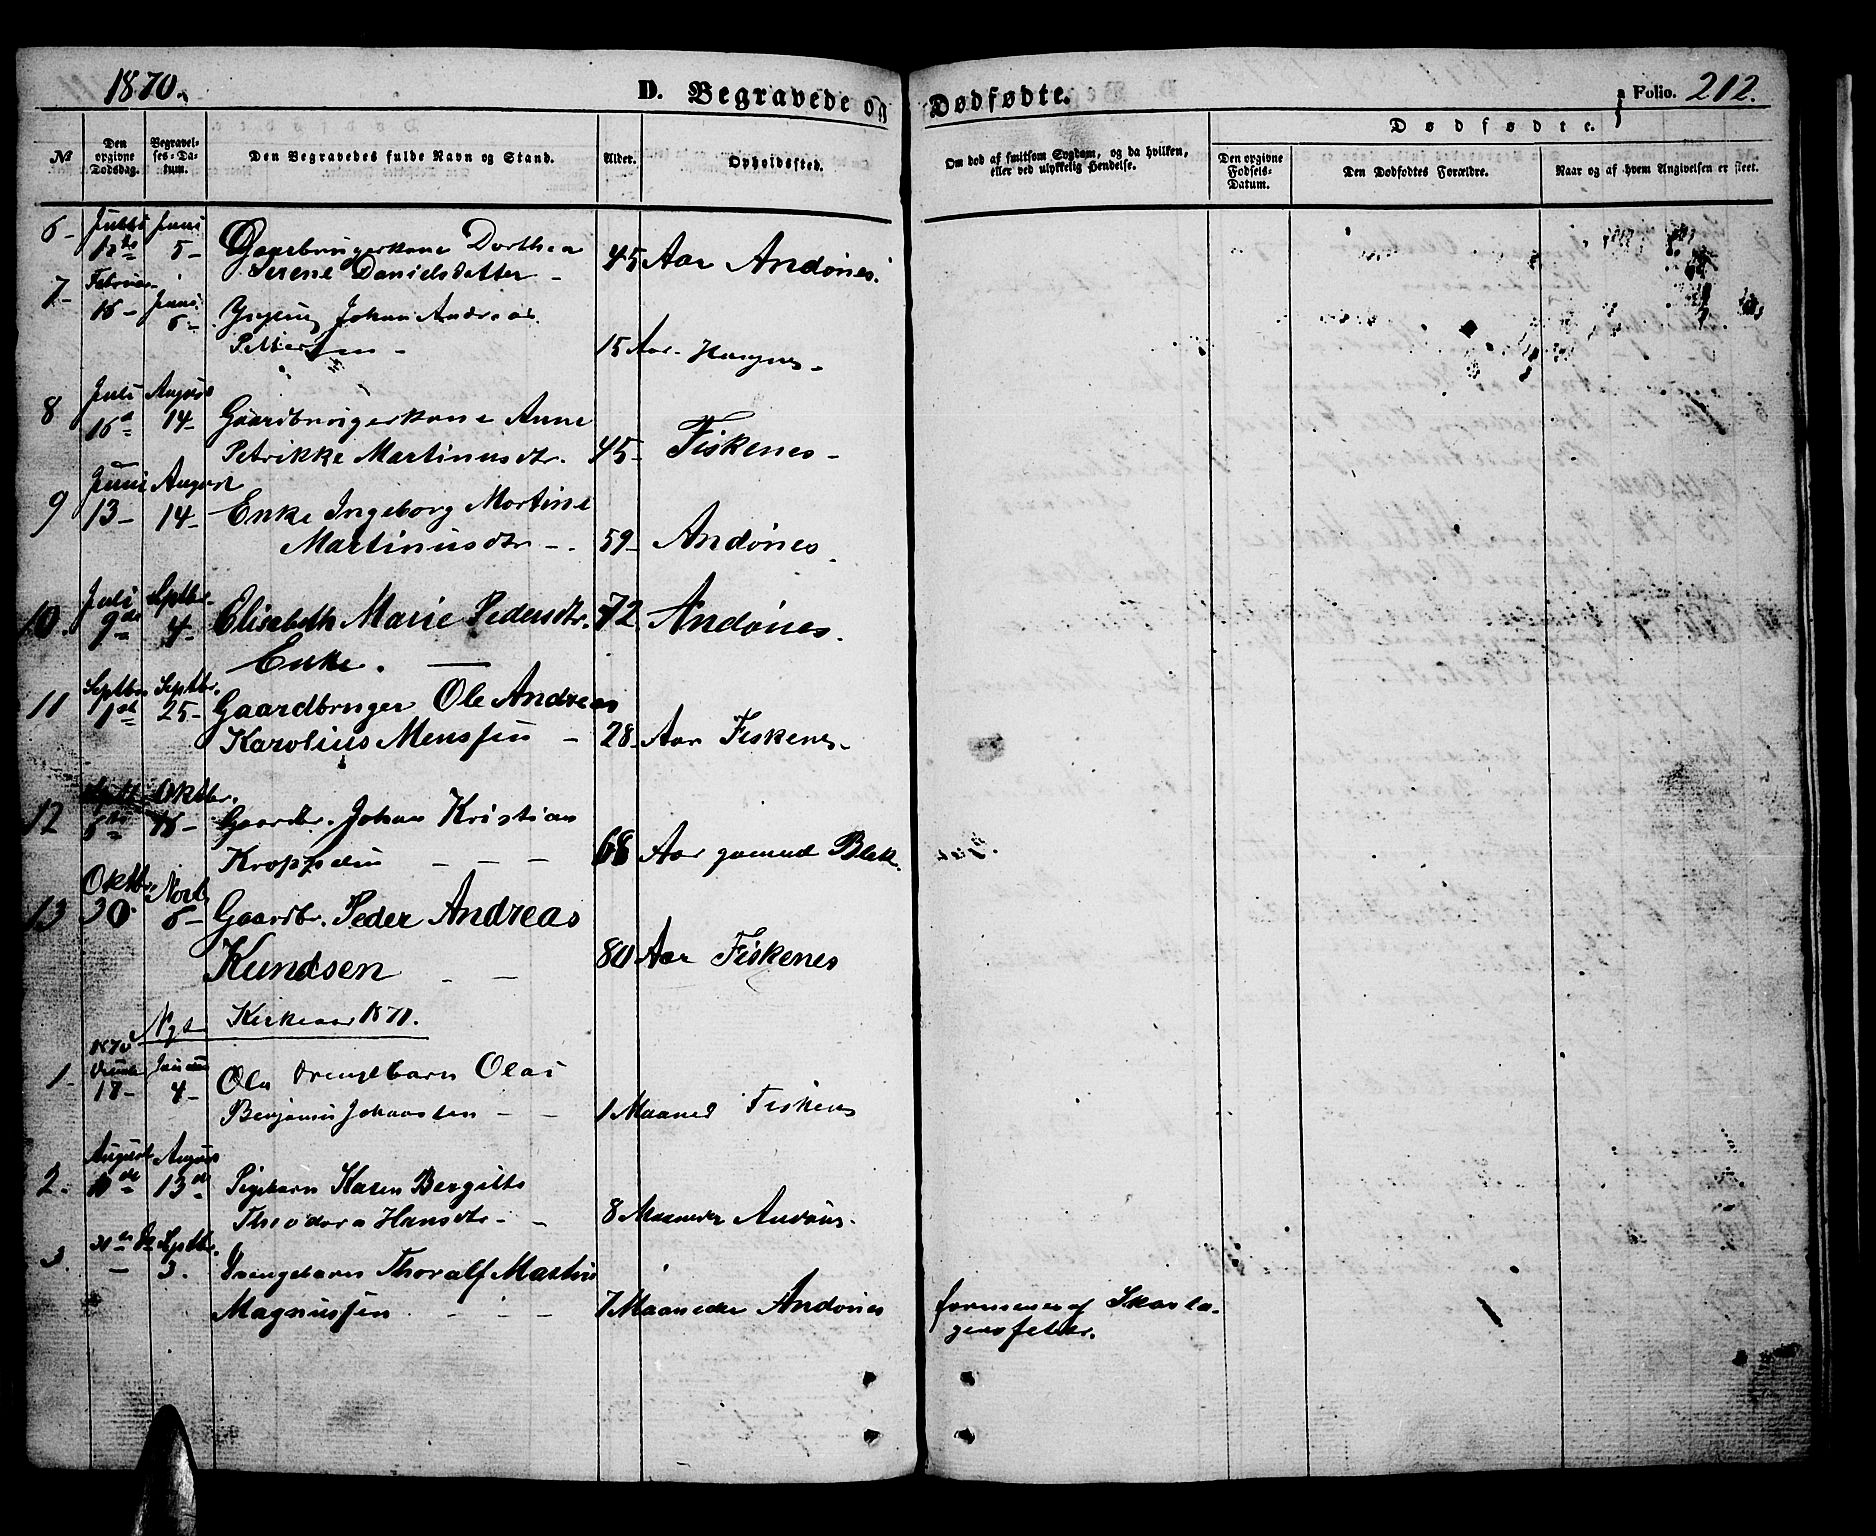 1870.
D. Begravede og Dødfødte.
Folio. 212.
No
Den opgivne Dødsdag.
Begravelses-Datum.
Den Begravedes fulde Navn og Stand.
Alder.
Opholdssted.
Om død af smitsom Sygdom, og da hvilken, eller ved ulykkelig Hendelse.
Dødfødte.
Den opgivne Fødsels-Datum.
Den Dødfødtes Forældre.
Naar og af hvem Angivelsen er skeet.
6- Juni 5- Dorthea
Serene Danielsdatter - 45 Aar Andönes.
7- Februar 16- Juni 6- Johan Andreas
Pettersen - 15 Aar -
8 Juli 16de August 14- Gaardbrugerkone Anne
Petrikke Martinusdtr. 45- Fiskenes-
9 Juni 13- August 14- Enke Ingeborg Martine
Martinusdtr - . 59- Andönes.
10. Juli 9de Septbr. 4- Elisabeth Marie Pedersdtr. 72. Andönes.
Enke. -
11 Septbr. 1st Septbr. 25- Gaardbruger Ole Andreas
Karolius Monssen - 28- Aar Fiskenes-
12 Oktbr. Gaardbr. Johan Kristian
- - - 68 Aar Blek.
13 Oktbr. 30. 6- Gaardbr. Peder Andreas
Kundsen - - 80 Aar Fiskenes
Nyt Kirkeaar 1871.
1- 1870 18- Januar 4- Drengebarn Olai
Benjamin Johansen - - 1 Maaned Fiskenes
2. August August 13de Pigebarn Karen Bergitte
Theodora Hansdtr- - 8 Maaneder Andönes-
3. Septbr. 3. Drengebarn Thoralf Martin
Magnussen - - - 7 Maaneder Andönes af Skarla-
gensfeber.